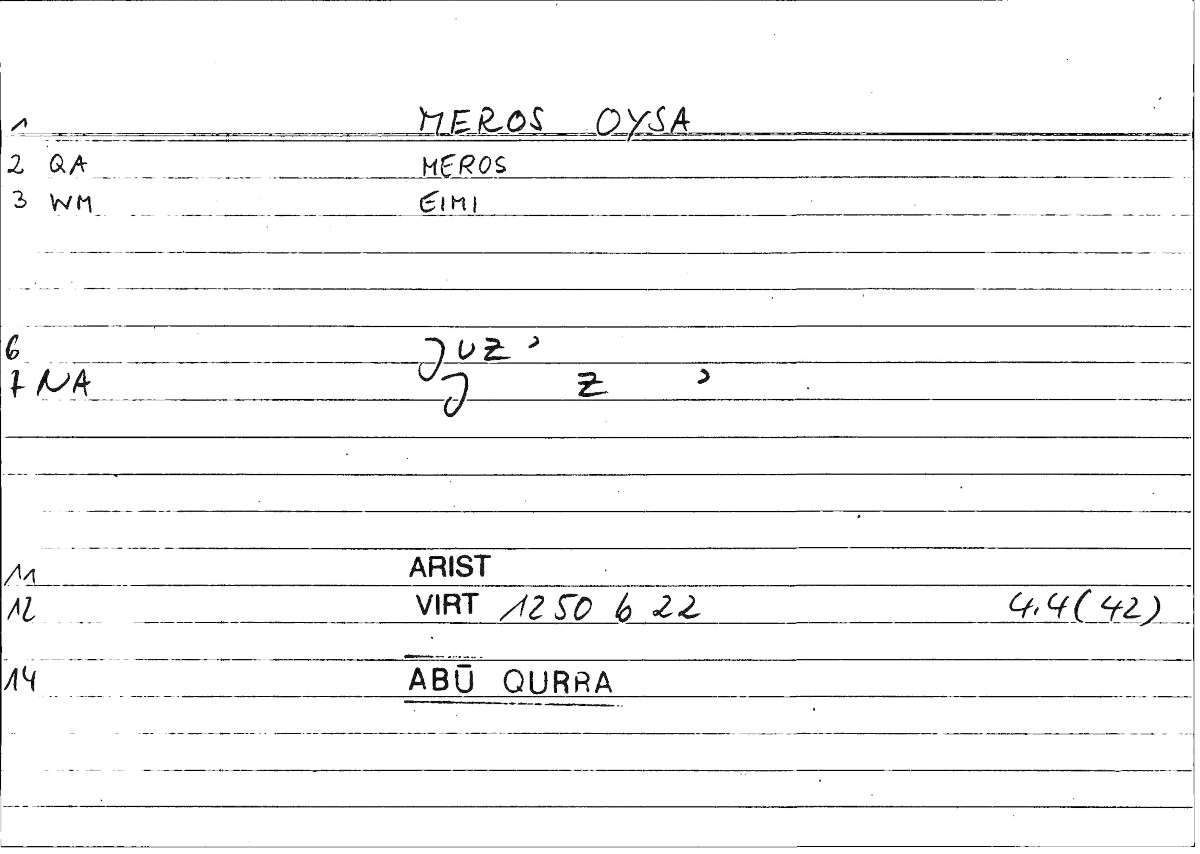 1 MEROS OYSA
2 QA MEROS
3 WM EIMI
6 JUZ ʾ
7 NA J Z ʾ
11 ARIST
12 VIRT 1250 b 22 4.4(42)
14 ABŪ QURRA